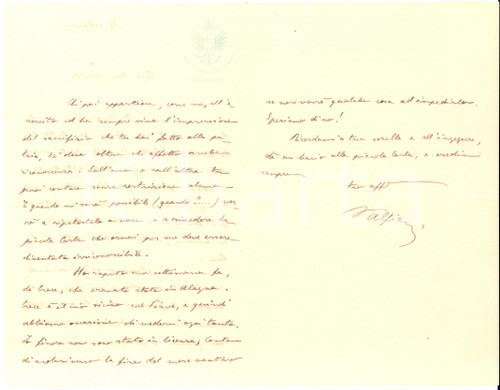 Chi poi appartiene, come me, all'e
sercito ed ha sempre viva l'impressione
del sacrificio che tu hai fatto alla pa
tria, ti deve oltre che affetto anche
riconoscenza: sull'uno e sull'altra tu
puoi contare senza restrizione alcuna
e quando mi sarà possibile (quando?....) ver
rò a ripetertelo a voce e a rivedere la
piccola Carla che ormai per me deve essere
diventata irriconoscibile.
Ho saputo una settimana fa,
da che eravate stati in Alagna.
è vicino sul Piave, e quindi
abbiamo occasione di vederci ogni tanto.
Io finora non sono stato in licenza; conto
di andarci verso la fine del mese venturo
se non verrà qualche cosa ad impedirlo.
Speriamo di no!
Ricordami a tua sorella e all'ingegnere,
dà un bacio alla piccola Carla, e credimi
sempre
tuo aff